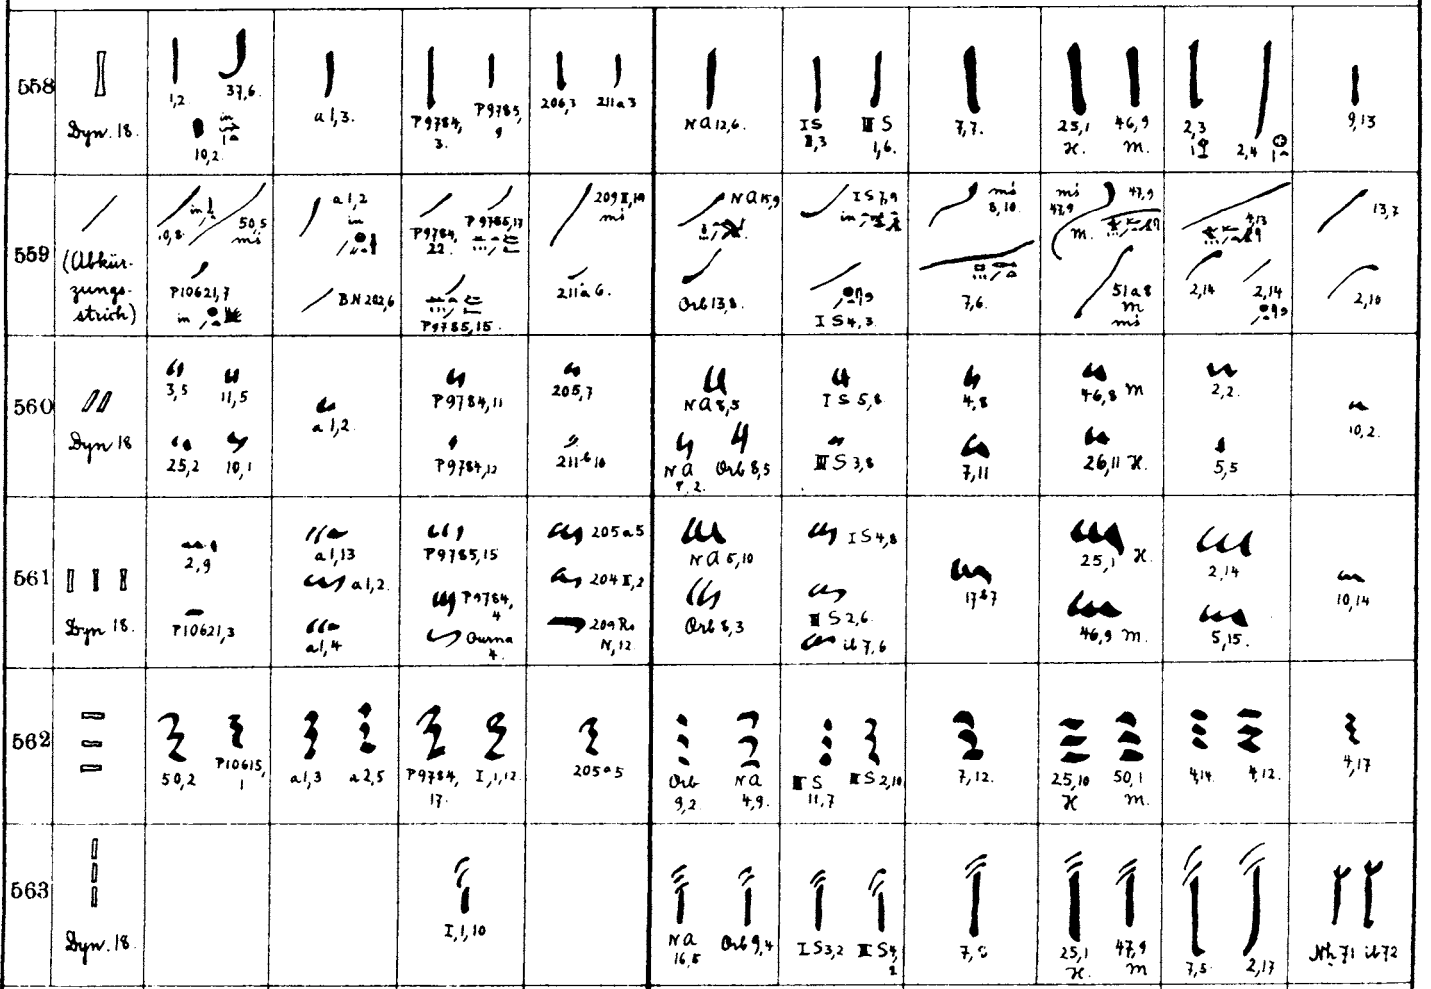 558
Dyn. 18.
1,2
37,6.
in
10,2.
a 1,3.
P 9784,
3.
P 9785,
9
206,3
211 a 3
NA 12,6.
IS
II,3
III S
1,6.
7,7.
25,1
H.
46,9
m.
2,3
2,4
9,13
559
(Abkür-
zungs-
strich)
10,8.
in
50,5
mś
P10621,7
in
a 1,2
in
BN 202,6
P9784,
22.
P 9785,17
P9785,15.
209 II,14
mś
211a 6.
NA 15,9
Orb 13,8.
IS 7,9
in
I S 4,3.
mś
8,10.
7,6.
mś
47,9
m.
47,9
51 a 8
m
mś
4,13
2,14
2,14
13,7
2,10
560
Dyn 18
3,5
11,5
25,2
10,1
a 1,2.
P9784,11
P9784,12
205,7
211 b 10
NA 8,5
NA
Orb 8,5
I S 5,8
III S 3,8
4,8
7,11
46,8 m
26,11 H.
2,2.
5,5
10,2.
561
Dyn 18.
2,9
P10621,3
a 1,13
a 1,2.
a 1,4
P9785,15
P9784,
4
Gurna
4.
205 a 5
204 II,2
209 Ro
N,12.
NA 5,10
Orb 8,3
I S 4,8
III S 2,6.
ib 7,6
17 & 7
25,1 H.
46,9 m.
2,14
5,15.
10,14
562
50,2
P10615,
1
a 1,3
a 2,5
P9784,
17.
I,1,12.
205 a 5
Orb
9,2.
NA
4,9.
III S
11,7
III S 2,10
7,12.
25,10
H
50,1
m.
4,14.
4,12.
4,17
563
Dyn. 18.
I,1,10
NA
16,5
Orb 9,4
I S 3,2
III S 4,
2
25,1
H.
47,9
m
7,5
2,17
Nh. 71 ib 72